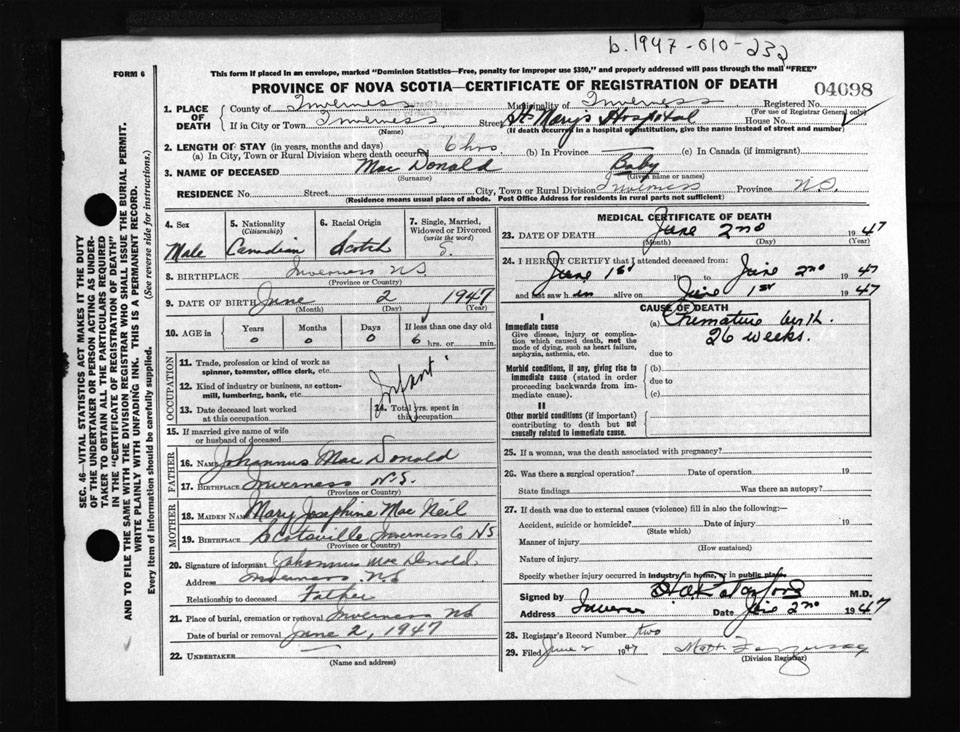 b.1947-010-232
FORM 6
This form if placed in an envelope, marked "Dominion Statistics—Free, penalty for improper use $300," and properly addressed will pass through the mail "FREE"
PROVINCE OF NOVA SCOTIA—CERTIFICATE OF REGISTRATION OF DEATH
04698
SEC. 46—VITAL STATISTICS ACT MAKES IT THE DUTY
OF THE UNDERTAKER OR PERSON ACTING AS UNDER-
TAKER TO OBTAIN ALL THE PARTICULARS REQUIRED
IN THE "CERTIFICATE OF REGISTRATION OF DEATH"
AND TO FILE THE SAME WITH THE DIVISION REGISTRAR WHO SHALL ISSUE THE BURIAL PERMIT.
WRITE PLAINLY WITH UNFADING INK. THIS IS A PERMANENT RECORD.
Every item of Information should be carefully supplied. (See reverse side for instructions.)
1. PLACE OF DEATH
County of Inverness Municipality of Inverness Registered No.
(For use of Registrar General only)
If in City or Town Inverness Street St Mary's Hospital House No.
(Name) (If death occurred in a hospital or institution, give the name instead of street and number)
2. LENGTH OF STAY (in years, months and days)
(a) In City, Town or Rural Division where death occurred 6 hrs (b) In Province — (c) In Canada (if immigrant)
3. NAME OF DECEASED Mac Donald Baby
(Surname) (Given name or names)
RESIDENCE No. Street City, Town or Rural Division Inverness Province N.S.
(Residence means usual place of abode. Post Office Address for residents in rural parts not sufficient)
4. Sex Male
5. Nationality (Citizenship) Canadian
6. Racial Origin Scotch
7. Single, Married, Widowed or Divorced (write the word) S.
8. BIRTHPLACE Inverness N.S.
(Province or Country)
9. DATE OF BIRTH June 2 1947
(Month) (Day) (Year)
10. AGE in Years Months Days If less than one day old
0 0 0 6 hrs. or min.
OCCUPATION
11. Trade, profession or kind of work as spinner, teamster, office clerk, etc.
12. Kind of industry or business, as cotton-mill, lumbering, bank, etc.
Infant
13. Date deceased last worked at this occupation
14. Total yrs. spent in this occupation
15. If married give name of wife or husband of deceased
FATHER
16. Name Johannus Mac Donald
17. Birthplace Inverness N.S.
(Province or Country)
MOTHER
18. Maiden Name Mary Josephine Mac Neil
19. Birthplace Scotsville Inverness Co NS
(Province or Country)
20. Signature of informant Johannus Mac Donald
Address Inverness, NS
Relationship to deceased Father
21. Place of burial, cremation or removal Inverness NS
Date of burial or removal June 2, 1947
22. UNDERTAKER —
(Name and address)
MEDICAL CERTIFICATE OF DEATH
23. DATE OF DEATH June 2nd 1947
(Month) (Day) (Year)
24. I HEREBY CERTIFY that I attended deceased from:
June 1st 19 to June 2nd 1947
and last saw h im alive on June 1st 1947
CAUSE OF DEATH
I
Immediate cause
Give disease, injury or complication which caused death, not the mode of dying, such as heart failure, asphyxia, asthenia, etc.
(a) Premature birth.
26 weeks.
due to
Morbid conditions, if any, giving rise to immediate cause (stated in order proceeding backwards from immediate cause).
(b)
due to
(c)
II
Other morbid conditions (if important) contributing to death but not causally related to immediate cause.
25. If a woman, was the death associated with pregnancy?
26. Was there a surgical operation? Date of operation 19
State findings Was there an autopsy?
27. If death was due to external causes (violence) fill in also the following:—
Accident, suicide or homicide? Date of injury 19
(State which)
Manner of injury
(How sustained)
Nature of injury
Specify whether injury occurred in industry, in home, or in public place
Signed by M.D.
Address Inverness Date June 2nd 1947
28. Registrar's Record Number two
29. Filed June 2 1947 Matt
(Division Registrar)